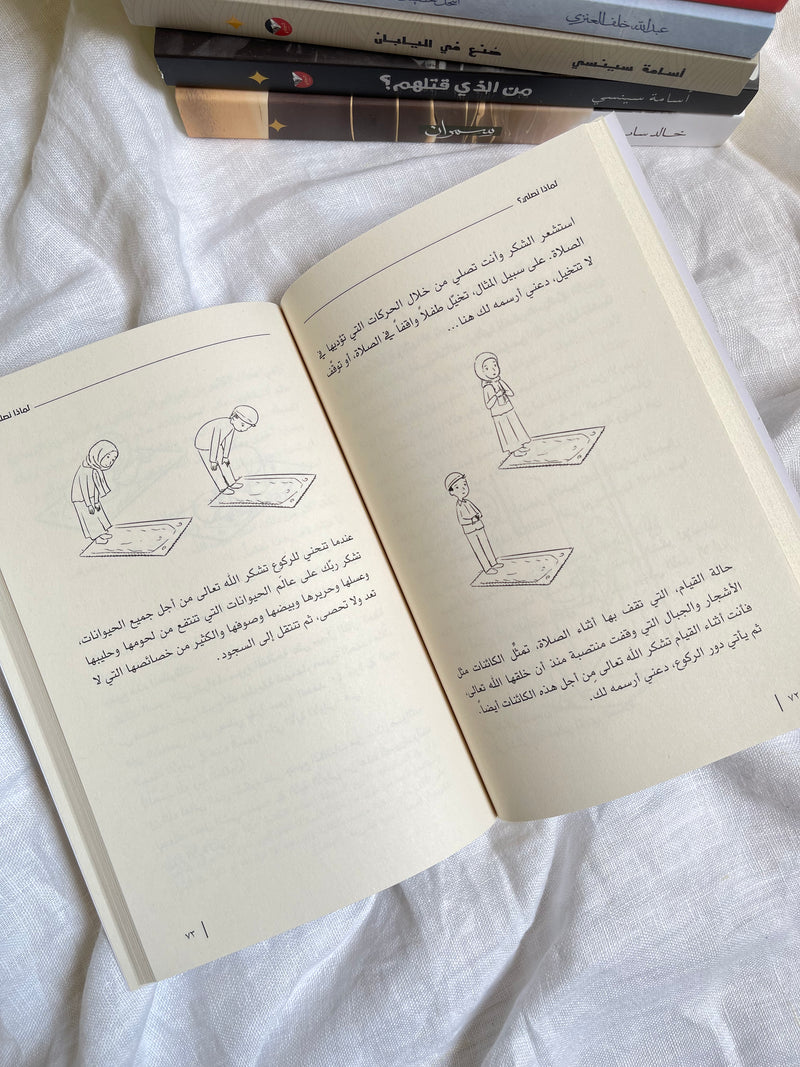 عبدالله خلف العنزي
صُنع في اليابان
أسامة سينسي
من الذي قتلهم؟
أسامة سينسي
سمران
خالد
لماذا نصلي؟
استشعر الشكر وأنت تصلي من خلال الحركات التي تؤديها في
الصلاة. على سبيل المثال، تخيّل طفلاً واقفاً في الصلاة، أو توقّف
لا تتخيل، دعني أرسمه لك هنا...
حالة القيام، التي تقف بها أثناء الصلاة، تمثّل الكائنات مثل
الأشجار والجبال التي وقفت منتصبة منذ أن خلقها الله تعالى،
فأنت أثناء القيام تشكر الله تعالى مِن أجل هذه الكائنات أيضاً.
ثم يأتي دور الركوع، دعني أرسمه لك.
٧٢
لماذا نصلي
عندما تنحني للركوع تشكر الله تعالى من أجل جميع الحيوانات،
تشكر ربّك على عالَم الحيوانات التي تنتفع من لحومها وحليبها
وعسلها وحريرها وبيضها وصوفها والكثير من خصائصها التي لا
تعد ولا تحصى، ثم تنتقل إلى السجود.
٧٣